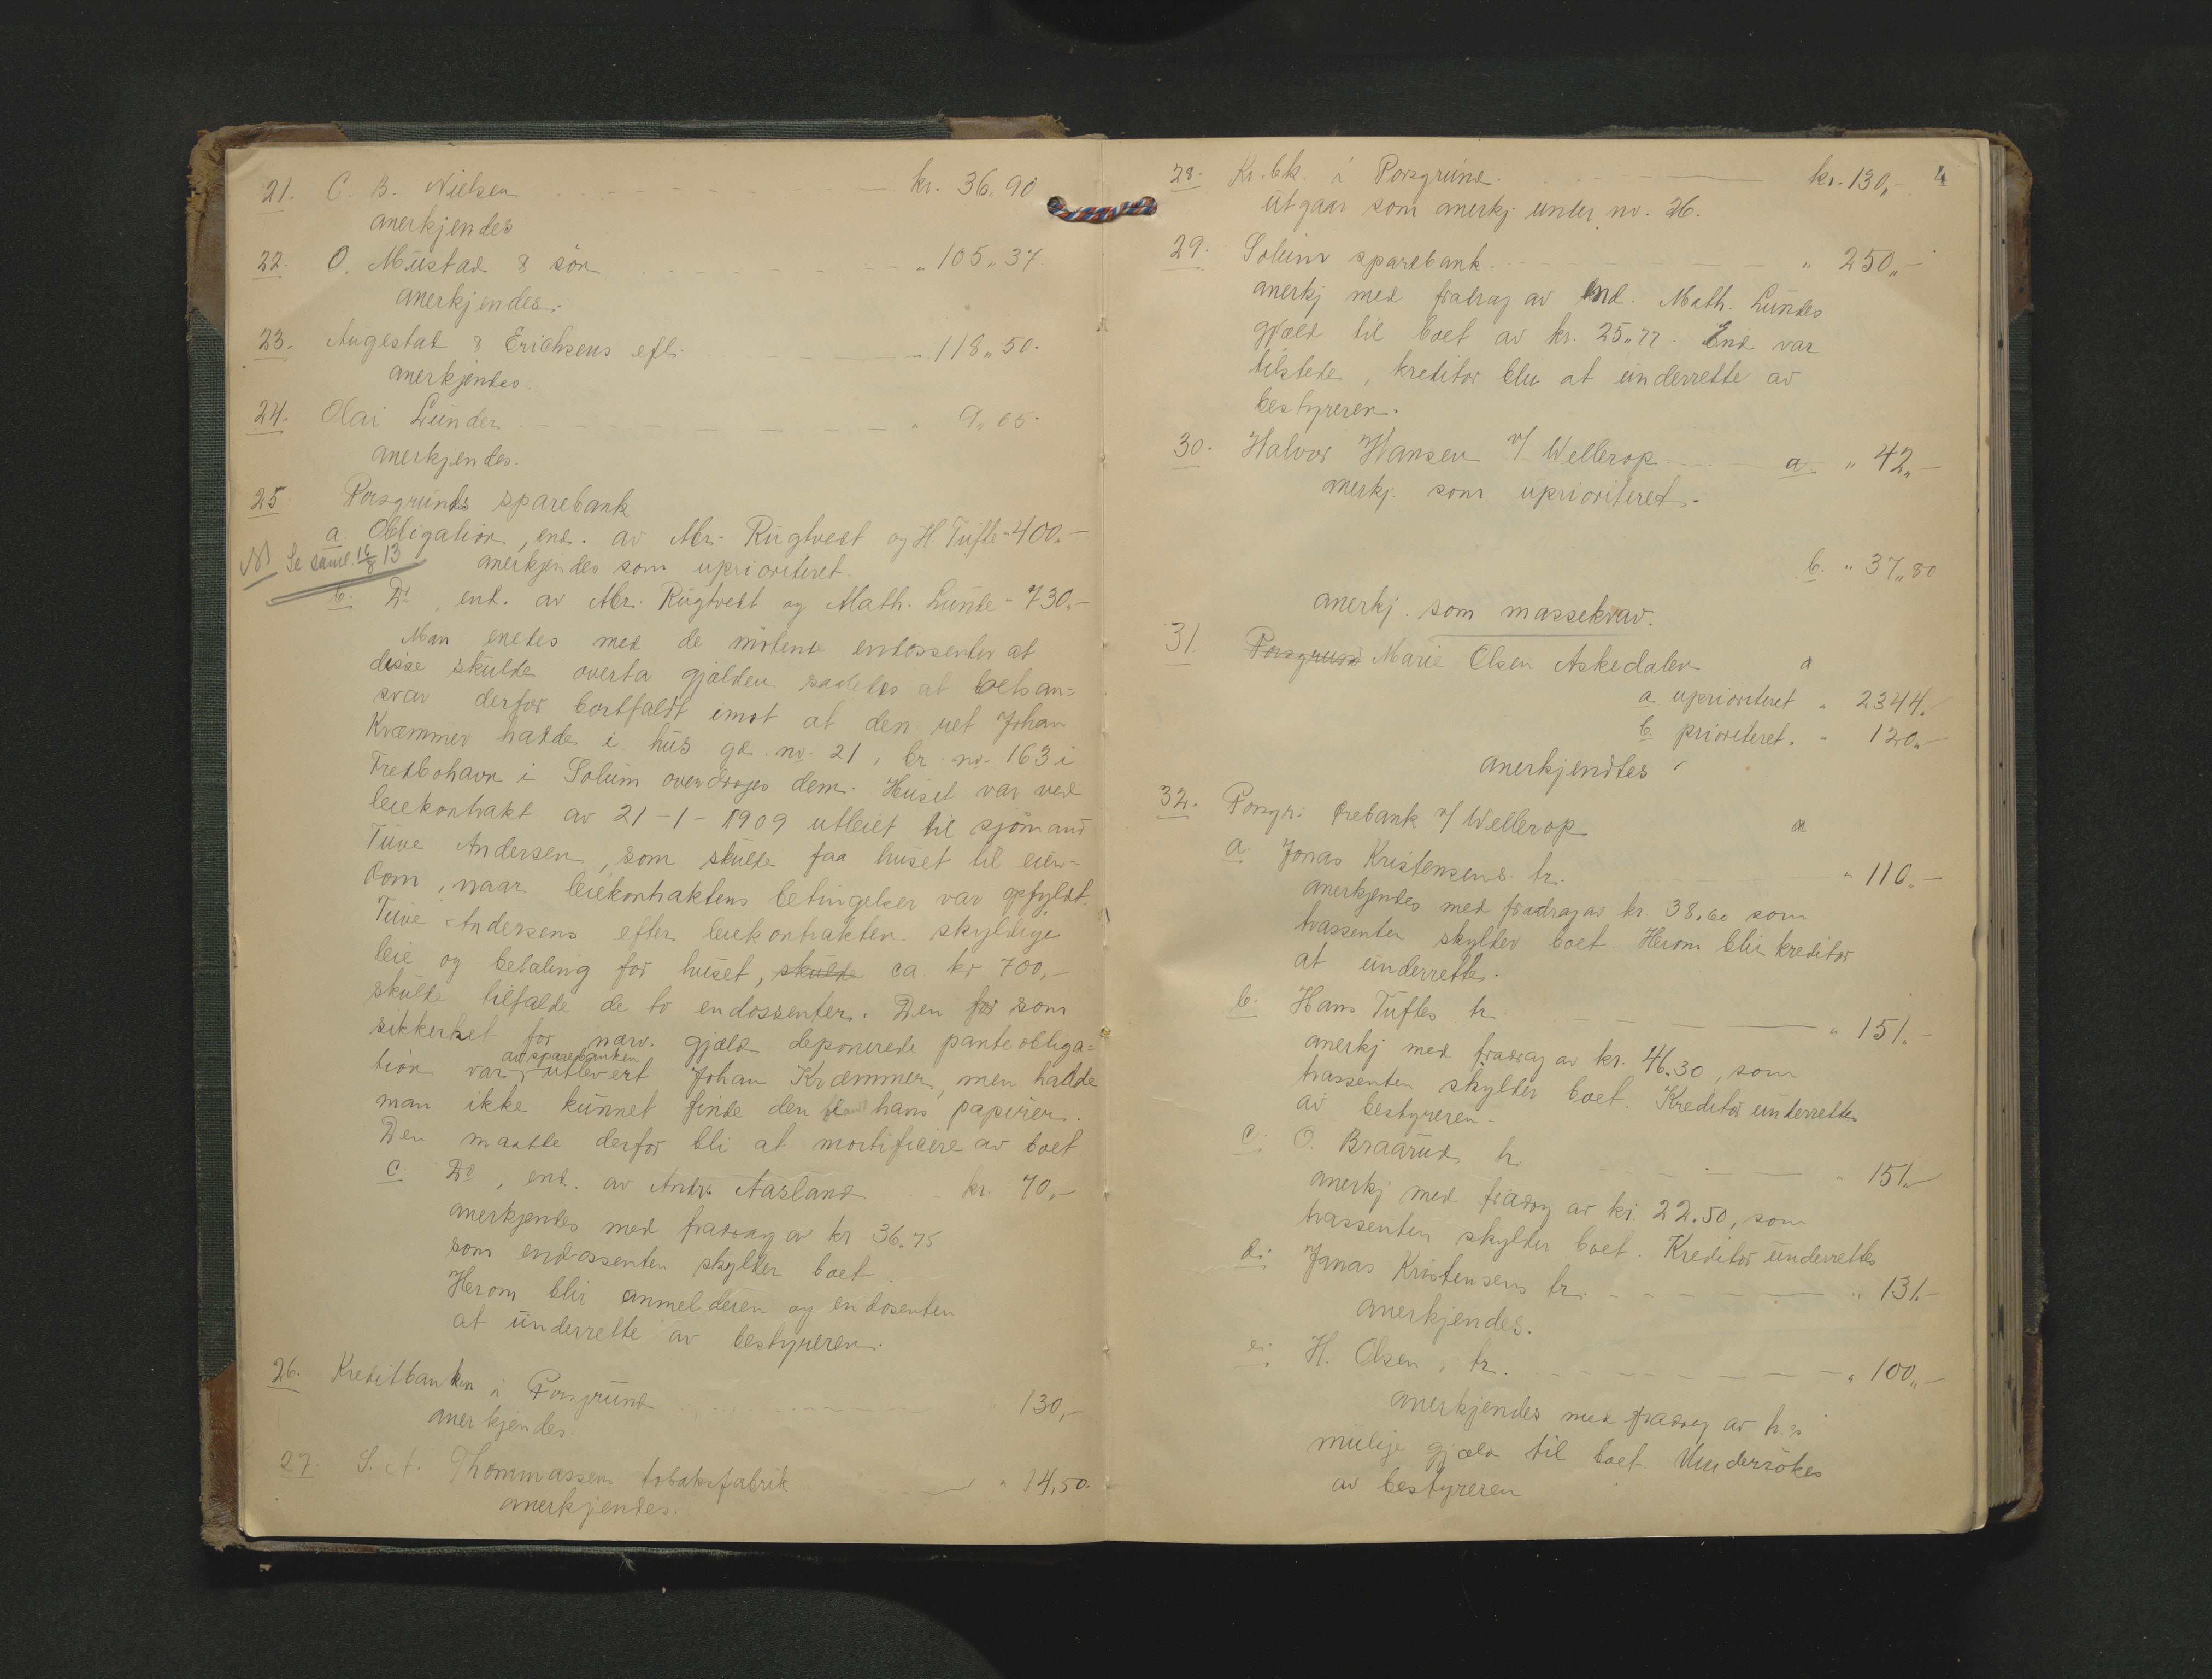 21. C. B. Nielsen kr. 36,90
anerkjendes
22. O. Müstad & søn " 105,,37.
anerkjendes.
23. Augestad & Erichsens eft. " 118,,50.
anerkjendes.
24. Olai Lunder " 9,05.
anerkjendes.
25 Porsgrunds sparebank
a. Obligation, end. av Abr. Rugtvedt og H. Tufte " 400,-
NB Se saml. 16/8 13 anerkjendes som uprioriteret.
b. Do, end. av Abr. Rugtvedt og Math. Lunde " 730,-
Man enedes med de møtende endossenter at
disse skulde overta gjælden saaledes at boets an=
svar derfor bortfaldt imot at den ret Johan
Kræmmer hadde i hus gd. nr. 21, br. nr. 163 i
Fredbohavn i Solum overdroges dem. Huset var ved
leiekontrakt av 21-1-1909 utleiet til sjømand
Tuve Andersen, som skulde faa huset til eien-
dom, naar leiekontraktens betingelser var opfyldt.
Tuve Andersens efter leiekontrakten skyldige
leie og betaling for huset, skulde ca. kr 700,-
skulde tilfalde de to endossenter. Den for som
sikkerhet for nærv. gjæld deponerede panteobliga=
tion var av sparebanken utlevert Johan Kræmmer, men hadde
man ikke kunnet finde den blandt hans papirer.
Den maatte derfor bli at mortificere av boet.
c. Do, end. av Andr. Aasland kr. 70,-
anerkjendes med fradrag av kr 36,75
som endossenten skylder boet.
Herom blir anmelderen og endosenten
at underrette av bestyreren.
26. Kreditbanken i Porsgrund 130,-
anerkjendes.
27. S. A. Thommassen tobaksfabrik " 14,50.
anerkjendes.
28. Kr. bk. i Porsgrund. kr. 130,- 4
utgaar som anerkj. under nr. 26.
29. Solum sparebank. " 250,-
anerkj med fradrag av end. Math. Lundes
gjæld til boet av kr. 25,77. End. var
tilstede, kreditor blir at underrette av
bestyreren.
30. Halvor Hansen v/ Wellerop a. " 42,-
anerkj. som uprioriteret.
b. " 37,,80
anerkj. som massekrav.
31. Porsgrund Marie Olsen Askedalen a
a. uprioriteret " 2344,-
b. prioriteret. " 120,-
anerkjendtes
32. Porsgr. Prebank v/ Wellerop a
a. Jonas Kristensens tr. " 110,-
anerkjendes med fradrag av kr. 38,60 som
trassenten skylder boet. Herom blir kreditor
at underrette.
b. Hans Tuftes tr. " 151.-
anerkj med fradrag av kr. 46.30, som
trassenten skylder boet. Kreditor underrettes
av bestyreren.
c. O. Braarud tr. " 151.-
anerkj med fradrag av kr. 22.50, som
trassenten skylder boet. Kreditor underrettes
d. Jonas Kristensens tr. " 131.-
anerkjendes.
e. H. Olsen, tr. " 100,-
anerkjendes med fradrag av tr.s
mulige gjæld til boet. Undersøkes
av bestyreren